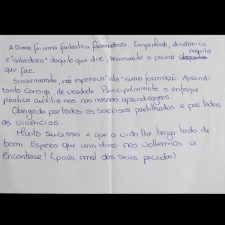 A Diana foi uma fantástica formadora. Empenhada, dinâmica
e "sabedora" daquilo que diz, transmite a paixão naquilo
que faz.
Sinceramente, não esperava isto numa formação. Aprendi
tanto consigo, de verdade. Principalmente o enfoque
prático auxilia-nos nas nossas aprendizagens
Obrigada por todos os sorrisos partilhados e por todas
as vivências.
Muito sucesso e que a vida lhe traga tudo de
bom. Espero que um dia nos voltemos a
encontrar! (para mal dos seus pecados)